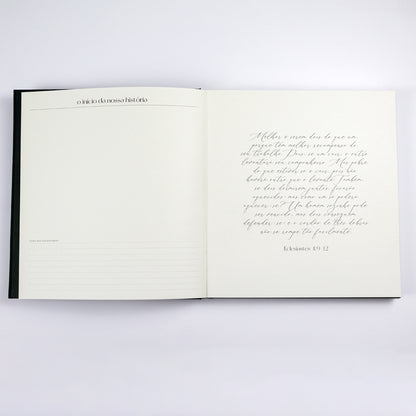 o início da nossa história
Melhor é serem dois do que um,
porque têm melhor recompensa do
seu trabalho. Pois se um cair, o outro
levantará seu companheiro. Mas pobre
do que estiver só e cair, pois não
haverá outro que o levante. Também
se dois dormirem juntos, ficarão
aquecidos; mas como um só poderá
aquecer-se? Um homem sozinho pode
ser vencido, mas dois conseguem
defender-se; e o cordão de três dobras
não se rompe tão facilmente.
Eclesiastes 4:9-12